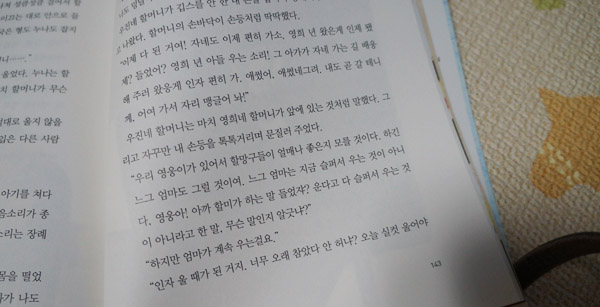 쳐다
기를 안으로
국은 형도 누나도 잠지
니……."
울었다. 누나는 할
할머니가 무슨
대로 울지 않을
있은 다른 사람
아기를 쳐다
음소리가 좋
소리는 장례
몸을 떨었
가 나도
우진네 할머니가 깁스를 안 한 내 손을
고 나왔다. 할머니의 손바닥이 손등처럼 딱딱했다.
"이제 다 된 겨여! 자네도 이제 편히 가소. 영희 년 왔은게 인제 됐
제? 들었어? 영희 년 아들 우는 소리! 그 아가가 자네 가는 길 배웅
해 주러 왔응게 인자 편히 가. 애썼어. 애썼네그려. 내도 곧 갈 테니
께, 어여 가서 자리 맹글어 놔!"
우진네 할머니는 마치 영희네 할머니가 앞에 있는 것처럼 말했다. 그
리고 자꾸만 내 손등을 톡톡거리며 문질러 주었다.
"우리 영웅이가 있어서 할망구들이 얼매나 좋은지 모를 것이다. 하긴
느그 엄마도 그럴 것이여. 느그 엄마는 지금 슬퍼서 우는 것이 아니
다. 영웅아! 아까 할미가 하는 말 들었쟈? 운다고 다 슬퍼서 우는 것
이 아니라고 한 말, 무슨 말인지 알긋냐?"
"하지만 엄마가 계속 우는걸요."
"인자 울 때가 된 거지. 너무 오래 참았다 안 허냐? 오늘 실컷 울어야
143